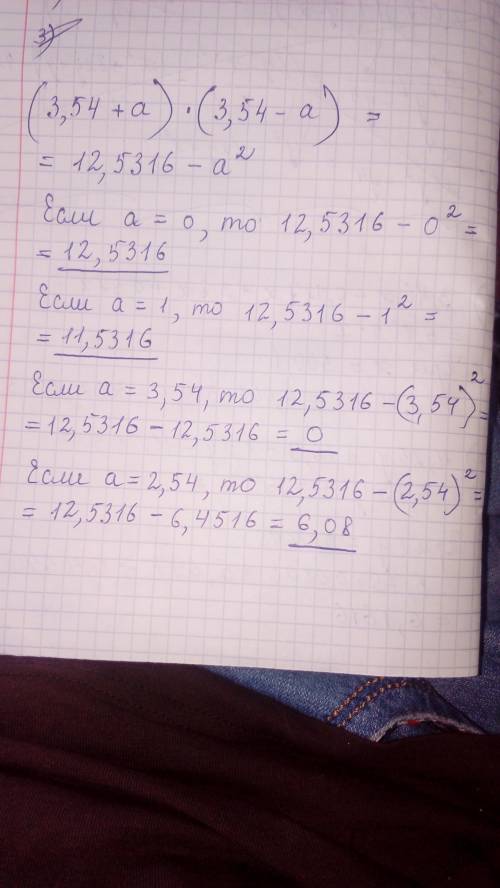 3)
(3,54 + a) · (3,54 - a) =
= 12,5316 - a²
Если a = 0, то 12,5316 - 0² =
= 12,5316
Если a = 1, то 12,5316 - 1² =
= 11,5316
Если a = 3,54, то 12,5316 - (3,54)² =
= 12,5316 - 12,5316 = 0
Если a = 2,54, то 12,5316 - (2,54)² =
= 12,5316 - 6,4516 = 6,08